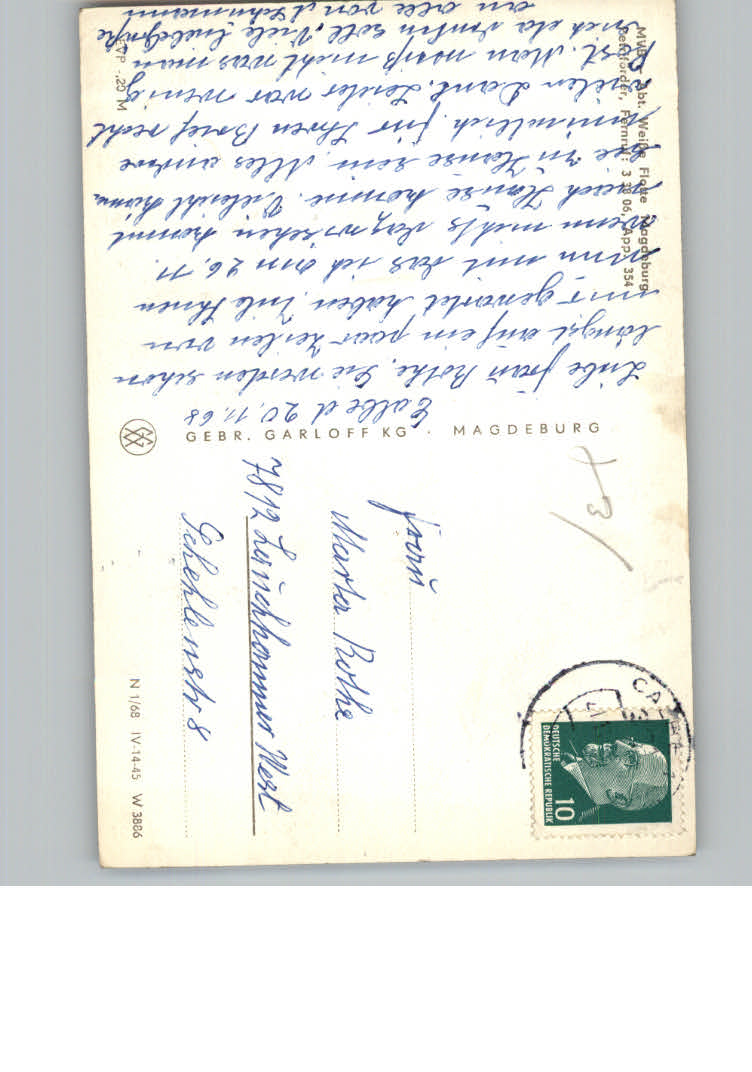 MVB - Abt. Weiße Flotte Magdeburg
Fernruf: 3 28 06, App. 354
EVP -,20 M
Calbe d 20.11.68
Liebe Frau Rothe. Sie werden schon
längst auf ein paar Zeilen von
mir gewartet haben. Teile Ihnen
nun mit das ich am 26.11.
wenn nichts dazwischen kommt
nach Hause komme. Vieleicht
sie zu Hause sein. Alles andere
mündlich für Ihren Brief recht
vielen Dank. Leider war wenig
Post. Man weiß nicht was man
sich da denken soll. Viele
an alle von
GEBR. GARLOFF KG · MAGDEBURG
Frau
Marta Rothe
7812 Lauchhammer West
8
+3/
CALBE
DEUTSCHE
DEMOKRATISCHE REPUBLIK
10
N 1/68 IV-14-45 W 3886